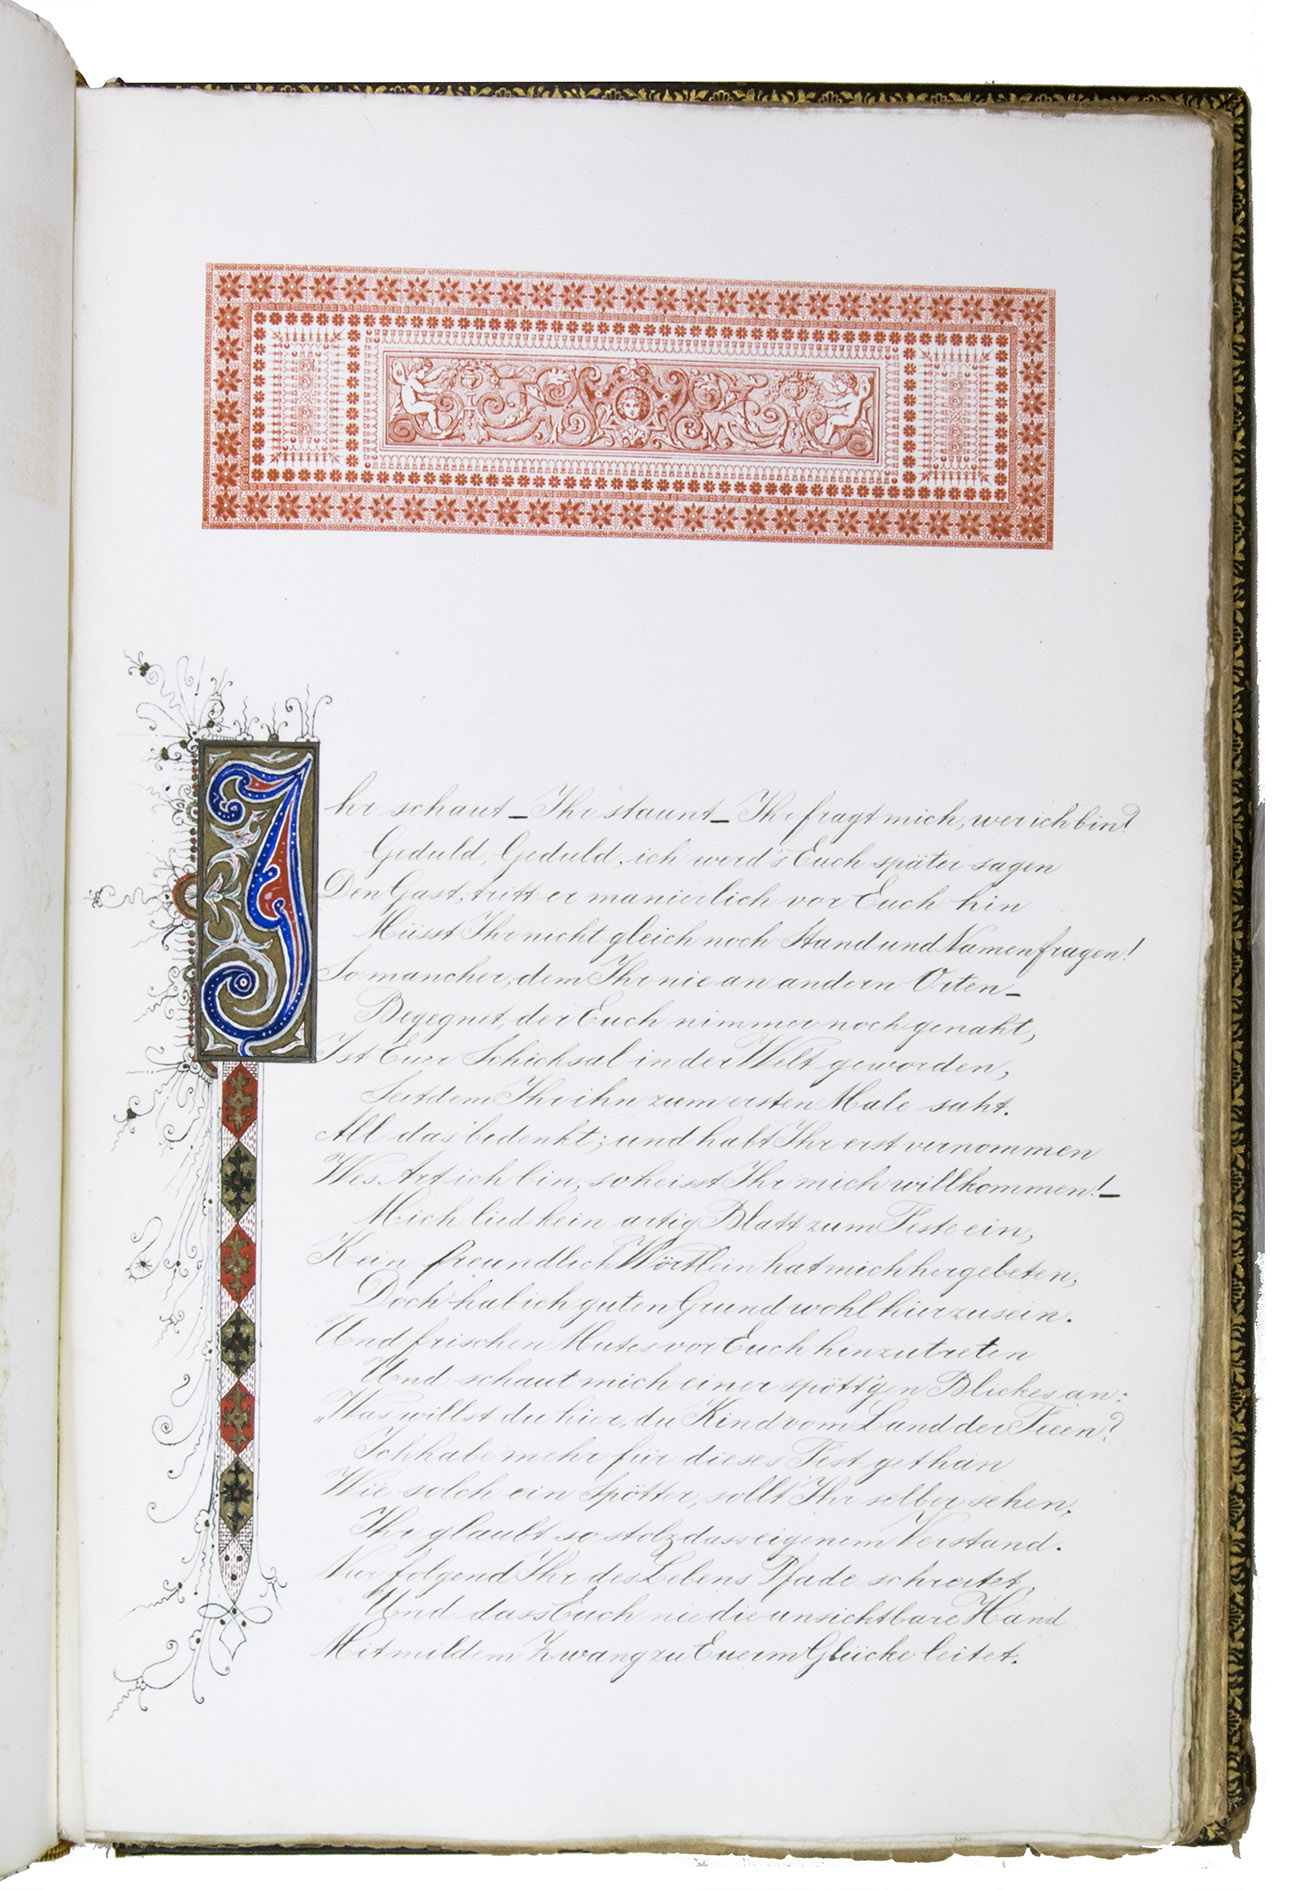 Ihr schaut – Ihr staunt – Ihr fragt mich, wer ich bin?
Geduld, Geduld, ich werd's Euch später sagen
Den Gast, tritt er manierlich vor Euch hin
Müsst Ihr nicht gleich noch Stand und Namen fragen!
So mancher, dem Ihr nie an andern Orten –
Begegnet, der Euch nimmer noch genaht,
Ist Euer Schicksal in der Welt geworden,
Seitdem Ihr ihn zum ersten Male saht.
All das bedenkt; und habt Ihr erst vernommen
Wes Art ich bin, so heisst Ihr mich willkommen! –
Mich lied kein artig Blatt zum Feste ein,
Kein freundlich Wörtlein hat mich hergebeten,
Doch hab ich guten Grund wohl hier zu sein.
Und frischen Mutes vor Euch hinzutreten
Und schaut mich einer spött'gen Blickes an:
„Was willst du hier, du Kind vom Land der Feen?
Ich habe mehr für dieses Fest gethan
Wie solch ein Spötter, sollt Ihr selber sehen.
Ihr glaubt so stolz dass eigenem Verstand.
Nur folgend Ihr des Lebens Pfade schreitet,
Und dass Euch nie die unsichtbare Hand
Mit mildem Zwang zu Euerm Glücke leitet.